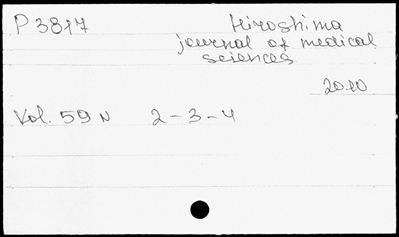 P 3817 Hiroshima
journal of medical
sciences
2010
Vol. 59 N 2-3-4